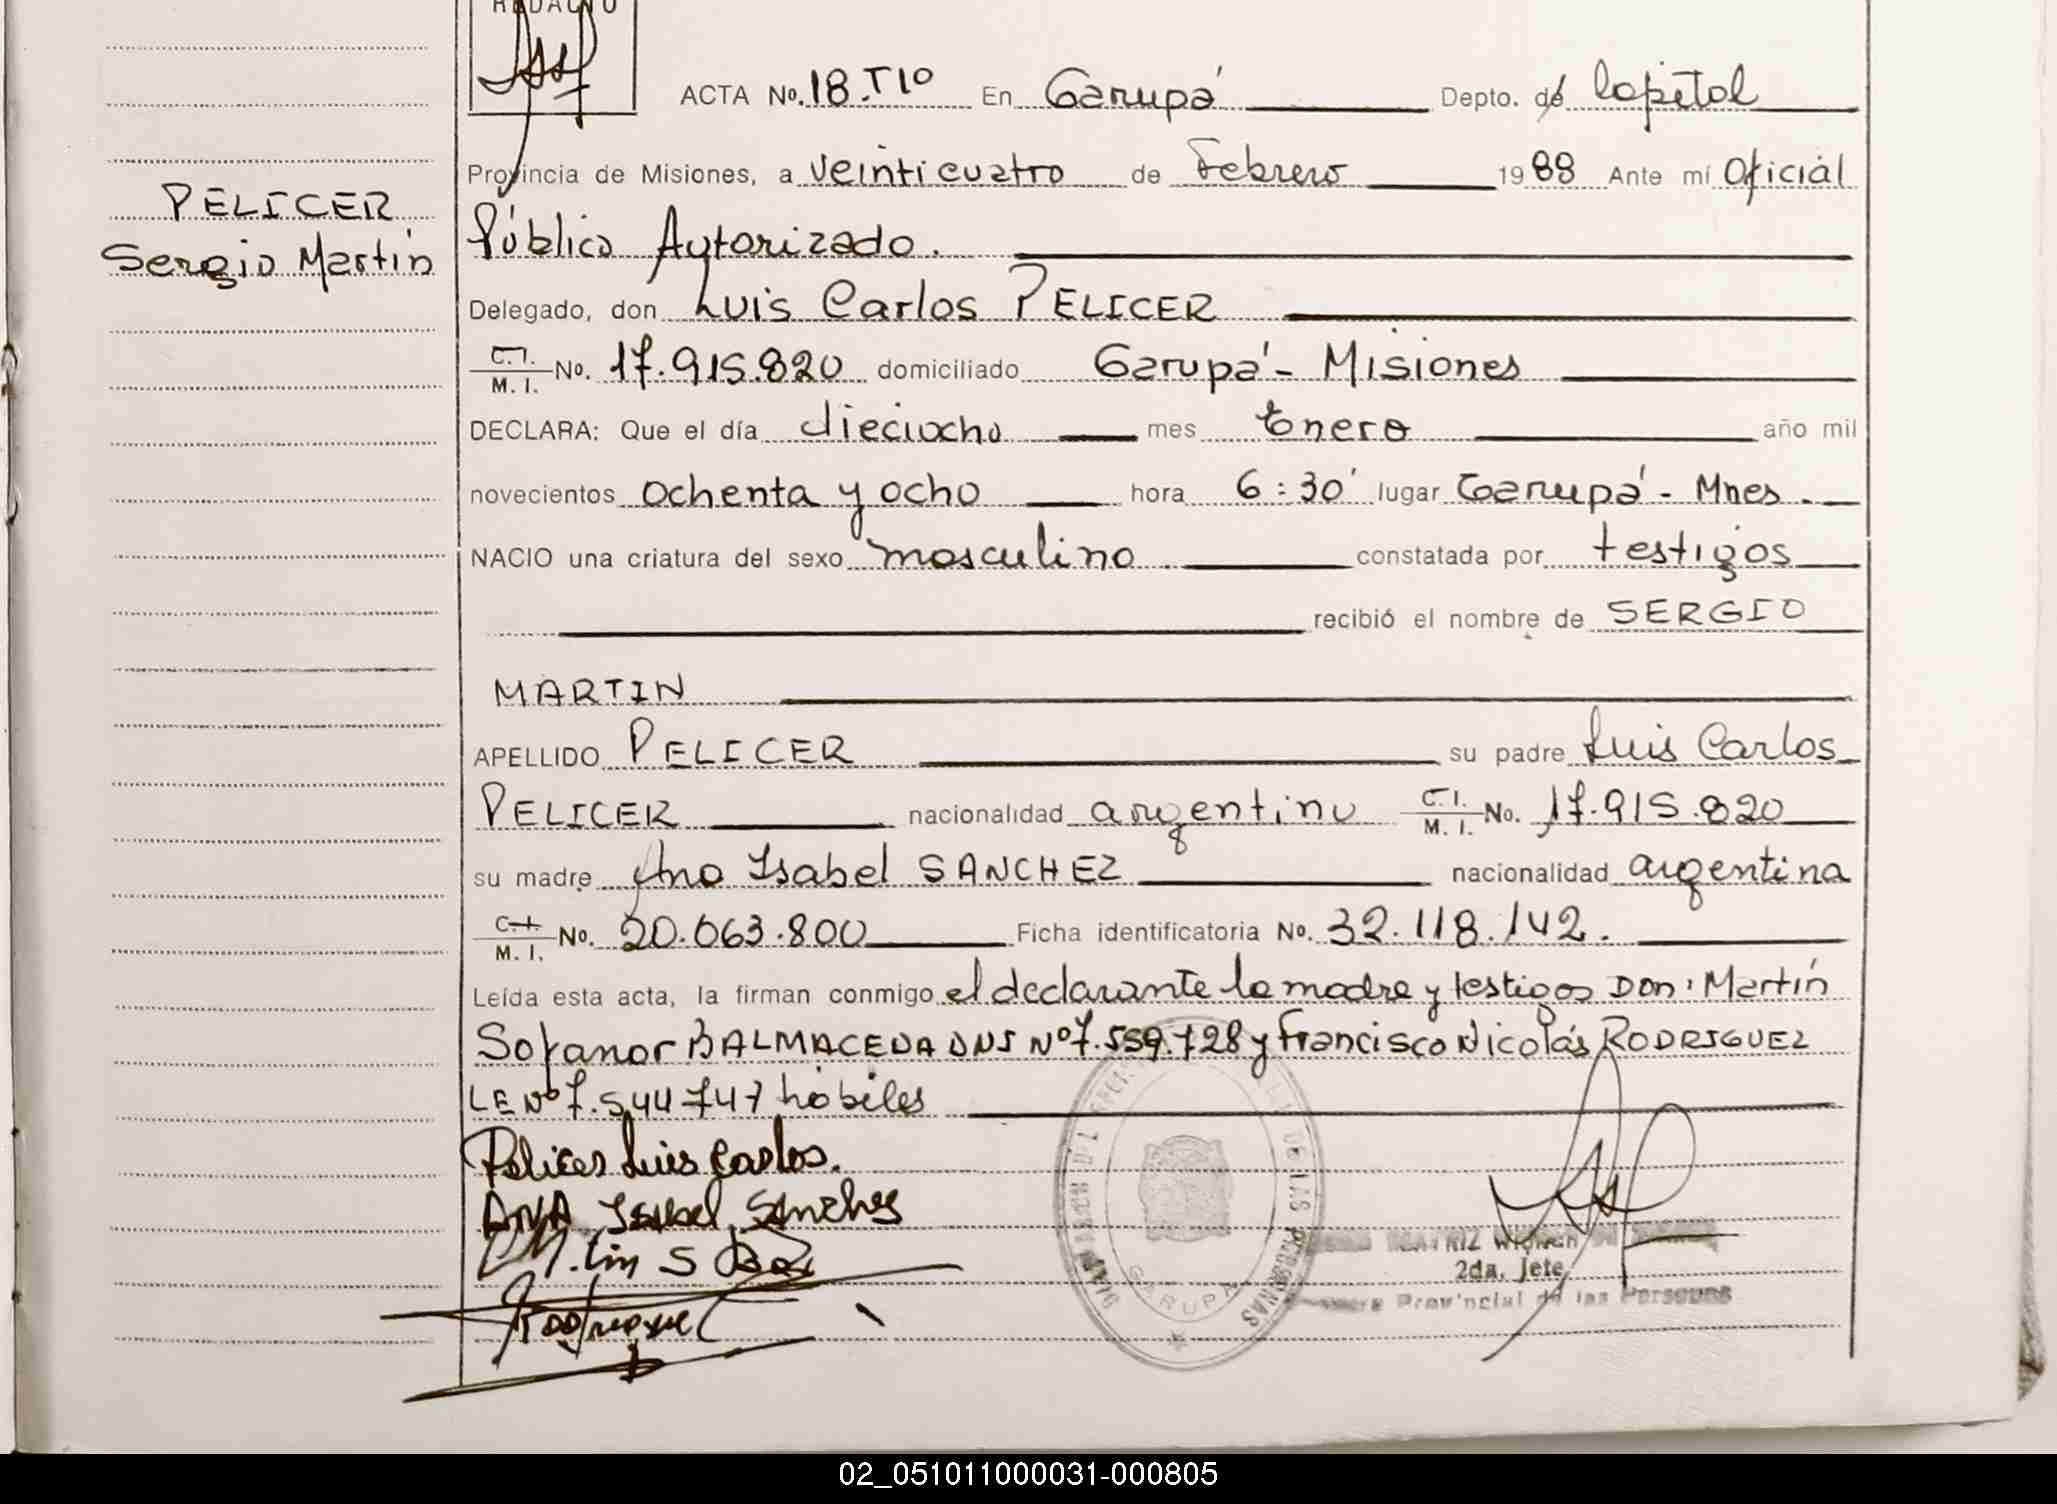 REDACTO
ACTA No. 18.Tlo En Garupá Depto. de Capital
Provincia de Misiones, a veinticuatro de Febrero 1988 Ante mí Oficial
PELICER
Sergio Martín
Público Autorizado.
Delegado, don Luis Carlos PELICER
C.I. M. I. No. 17.915.820 domiciliado Garupá - Misiones
DECLARA: Que el día dieciocho mes Enero año mil
novecientos ochenta y ocho hora 6:30' lugar Garupá - Mnes.
NACIO una criatura del sexo masculino constatada por testigos
recibió el nombre de SERGIO
MARTIN
APELLIDO PELICER su padre Luis Carlos
PELICER nacionalidad argentino C.I. M. I. No. 17.915.820
su madre Ana Isabel SANCHEZ nacionalidad argentina
C.I. M. I. No. 20.063.800 Ficha identificatoria No. 32.118.142.
Leída esta acta, la firman conmigo el declarante la madre y testigos Don: Martín
Sofanor BALMACEDA DNI Nº 7.559.728 y Francisco Nicolás RODRIGUEZ
LE Nº 7.544747 hábiles
Pelicer Luis Carlos.
ANA Isabel Sanchez
DE LAS PERSONAS
GARUPA
BEATRIZ
2da. Jefe
Provincial de las Personas
02_051011000031-000805